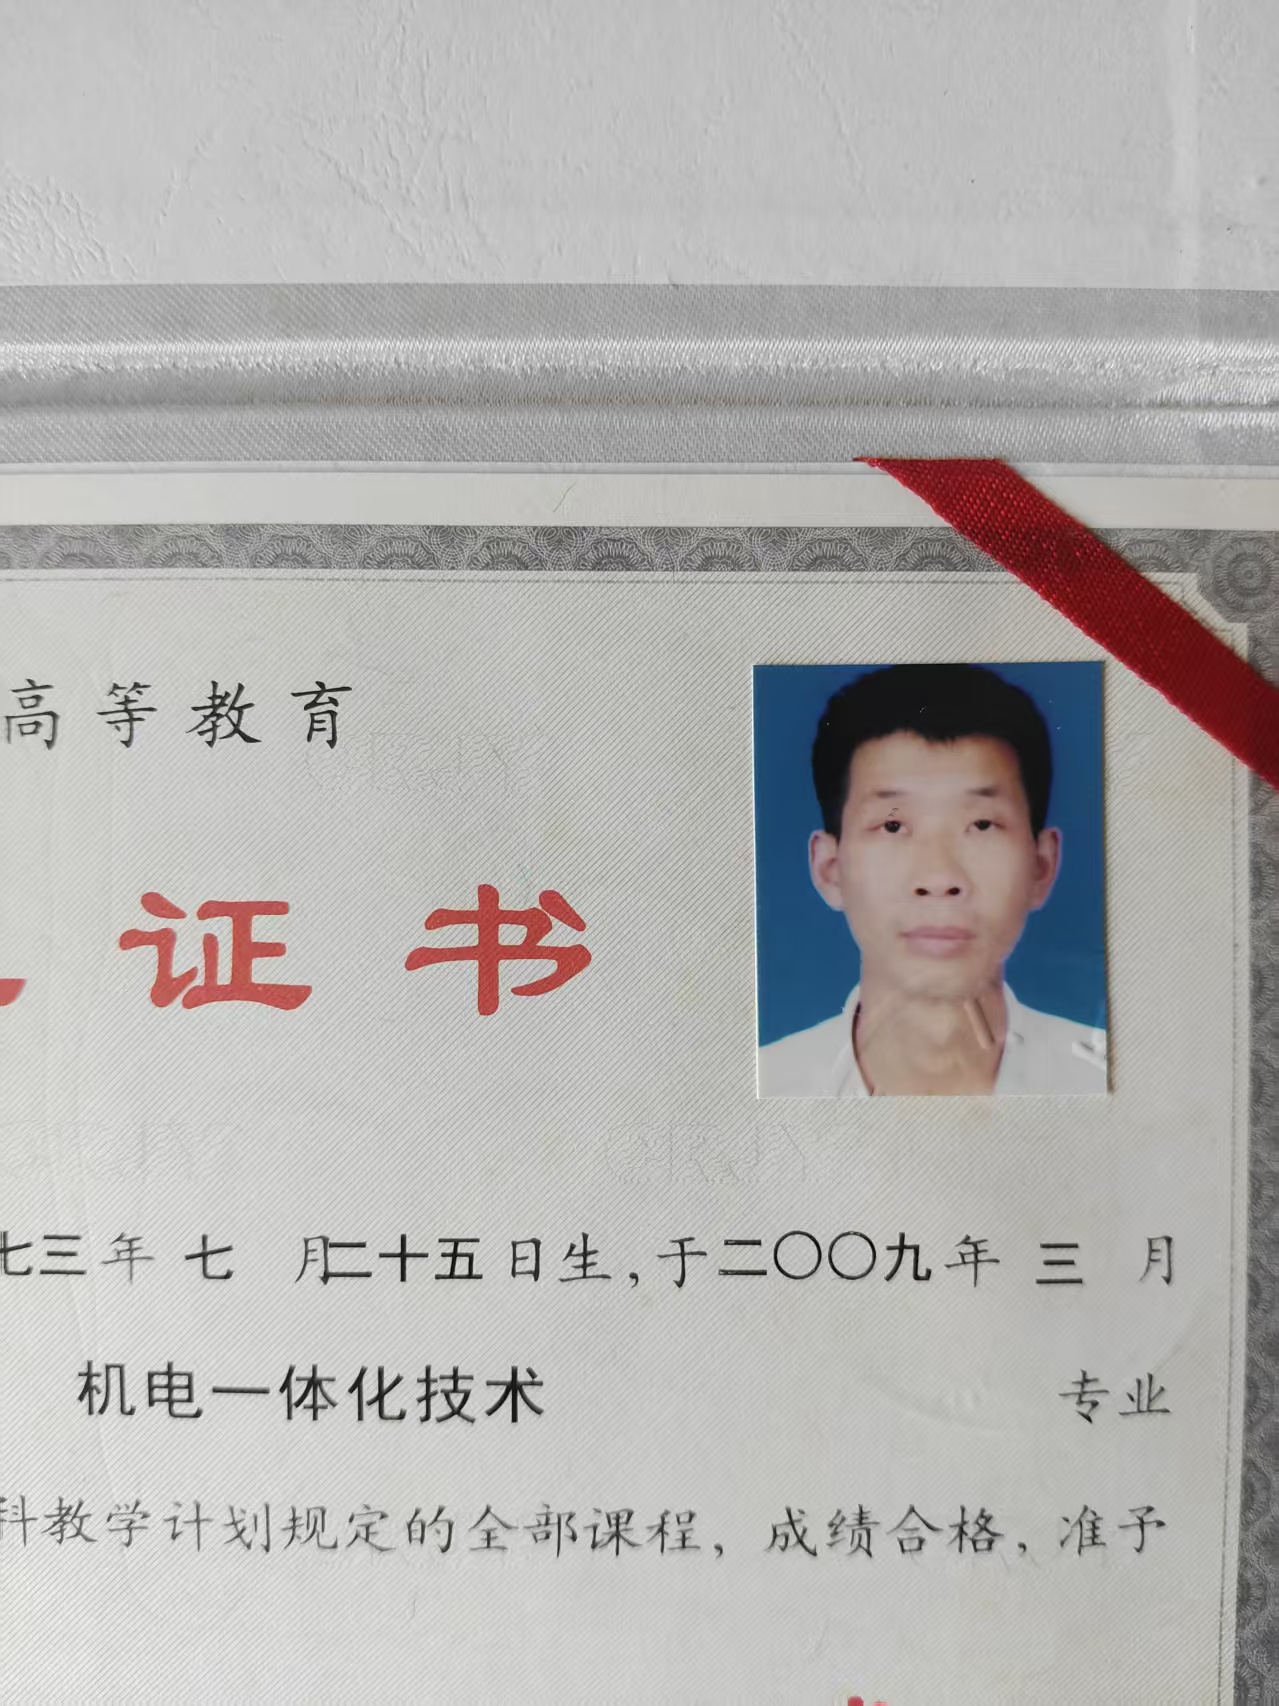 高等教育
证书
七三年 七 月二十五日生,于二〇〇九年 三 月
机电一体化技术 专业
科教学计划规定的全部课程，成绩合格，准予
CRJY
CRJY